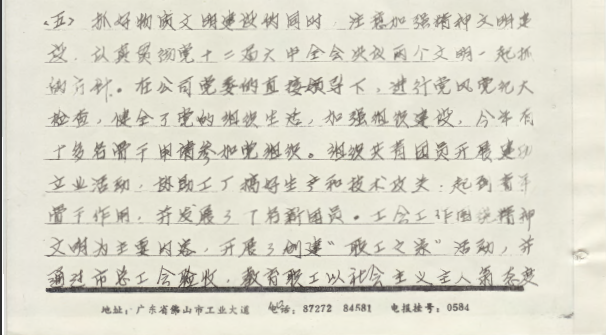 (五) 抓好物质文明建设的同时，注意加强精神文明建
设，认真贯彻党十二届六中全会决议两个文明一起抓
的方针。在公司党委的直接领导下，进行党风党纪大
检查，健全了党的组织生活，加强组织建设，今年有
十多名骨干申请参加党组织。组织共青团员开展建功
立业活动，协助工厂搞好生产和技术攻关，起到青年
骨干作用，并发展了7名新团员。工会工作围绕精神
文明为主要内容，开展了创建“职工之家”活动，并
通过市总工会验收，教育职工以社会主义主人翁态变
地址：广东省佛山市工业大道 电话：87272 84581 电报挂号：0584